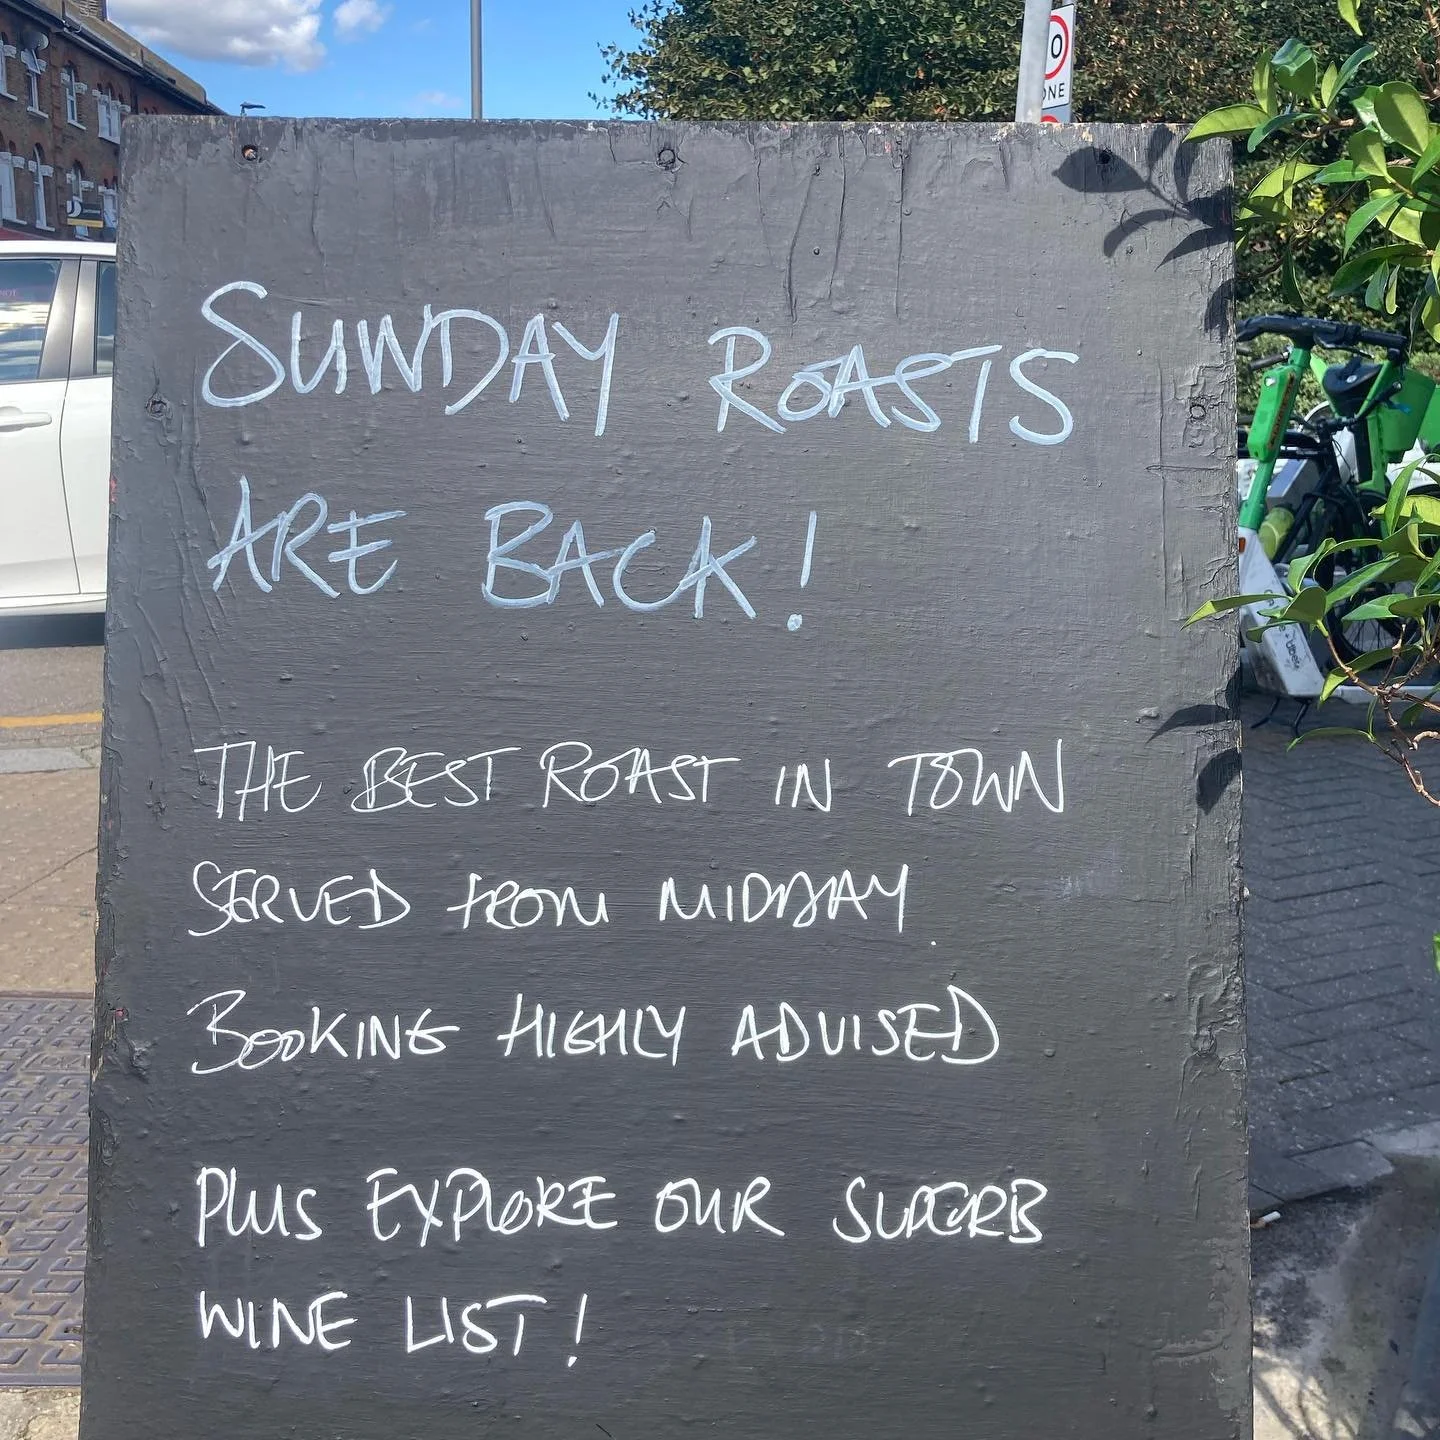 SUNDAY ROASTS
ARE BACK!
THE BEST ROAST IN TOWN
SERVED FROM MIDDAY.
BOOKING HIGHLY ADVISED
PLUS EXPLORE OUR SUPERB
WINE LIST!